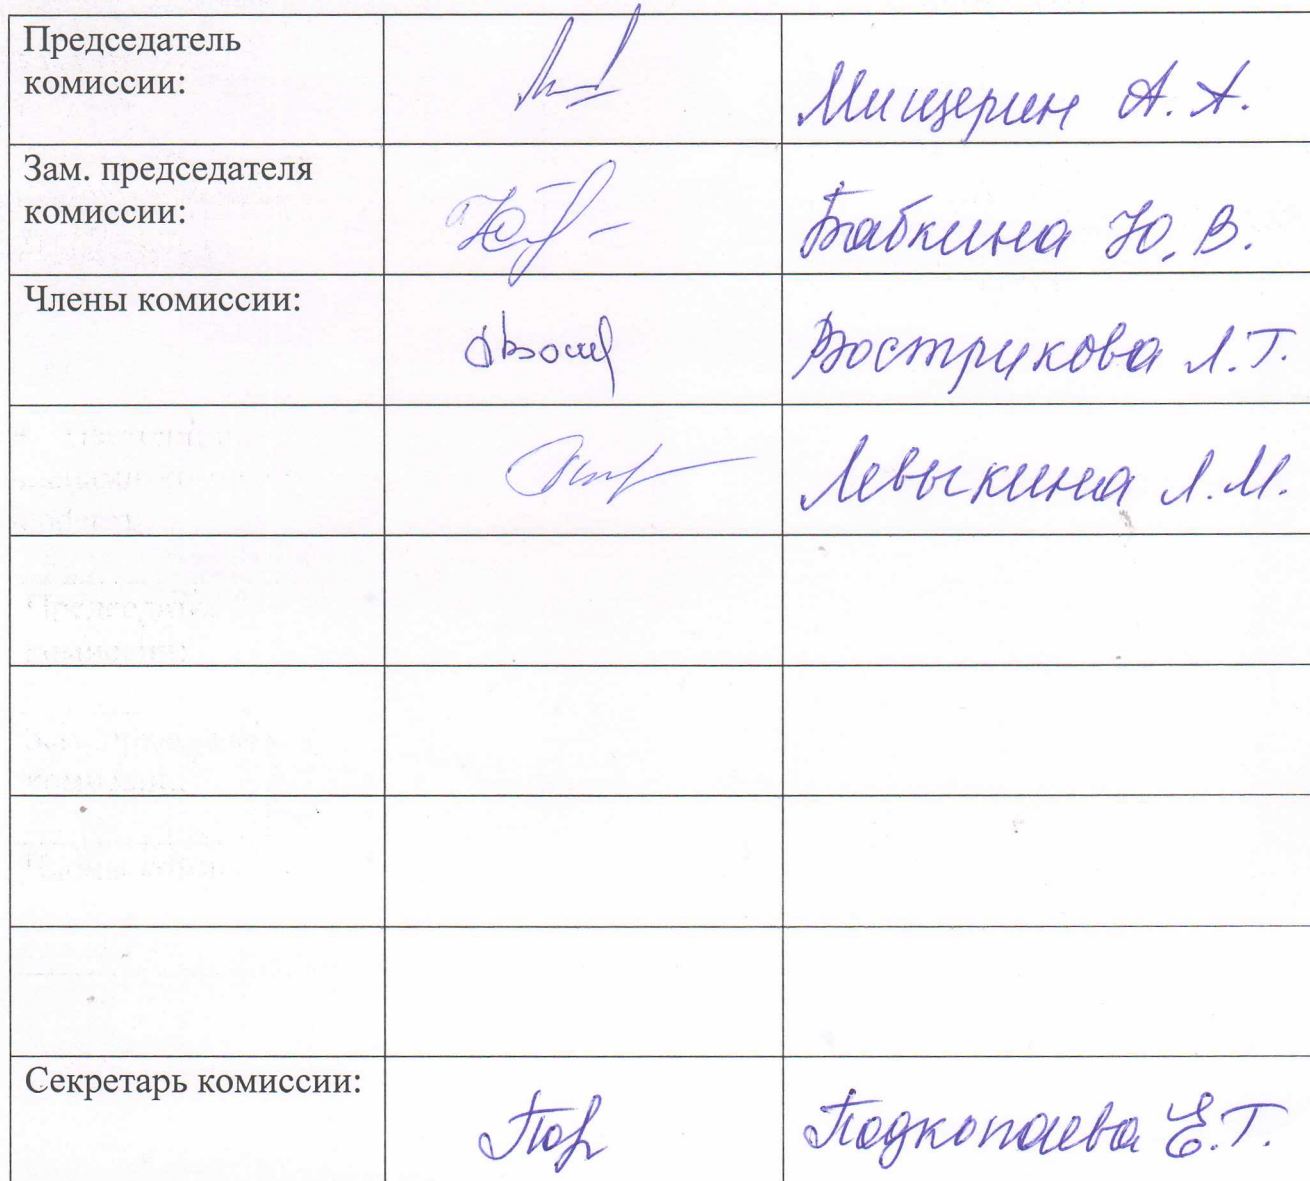 Председатель
комиссии:
Мищерин А. А.
Зам. председателя
комиссии:
Бабкина Ю. В.
Члены комиссии:
Вострикова Л.Т.
Левыкина Л.М.
Секретарь комиссии:
Подкопаева Е.Т.